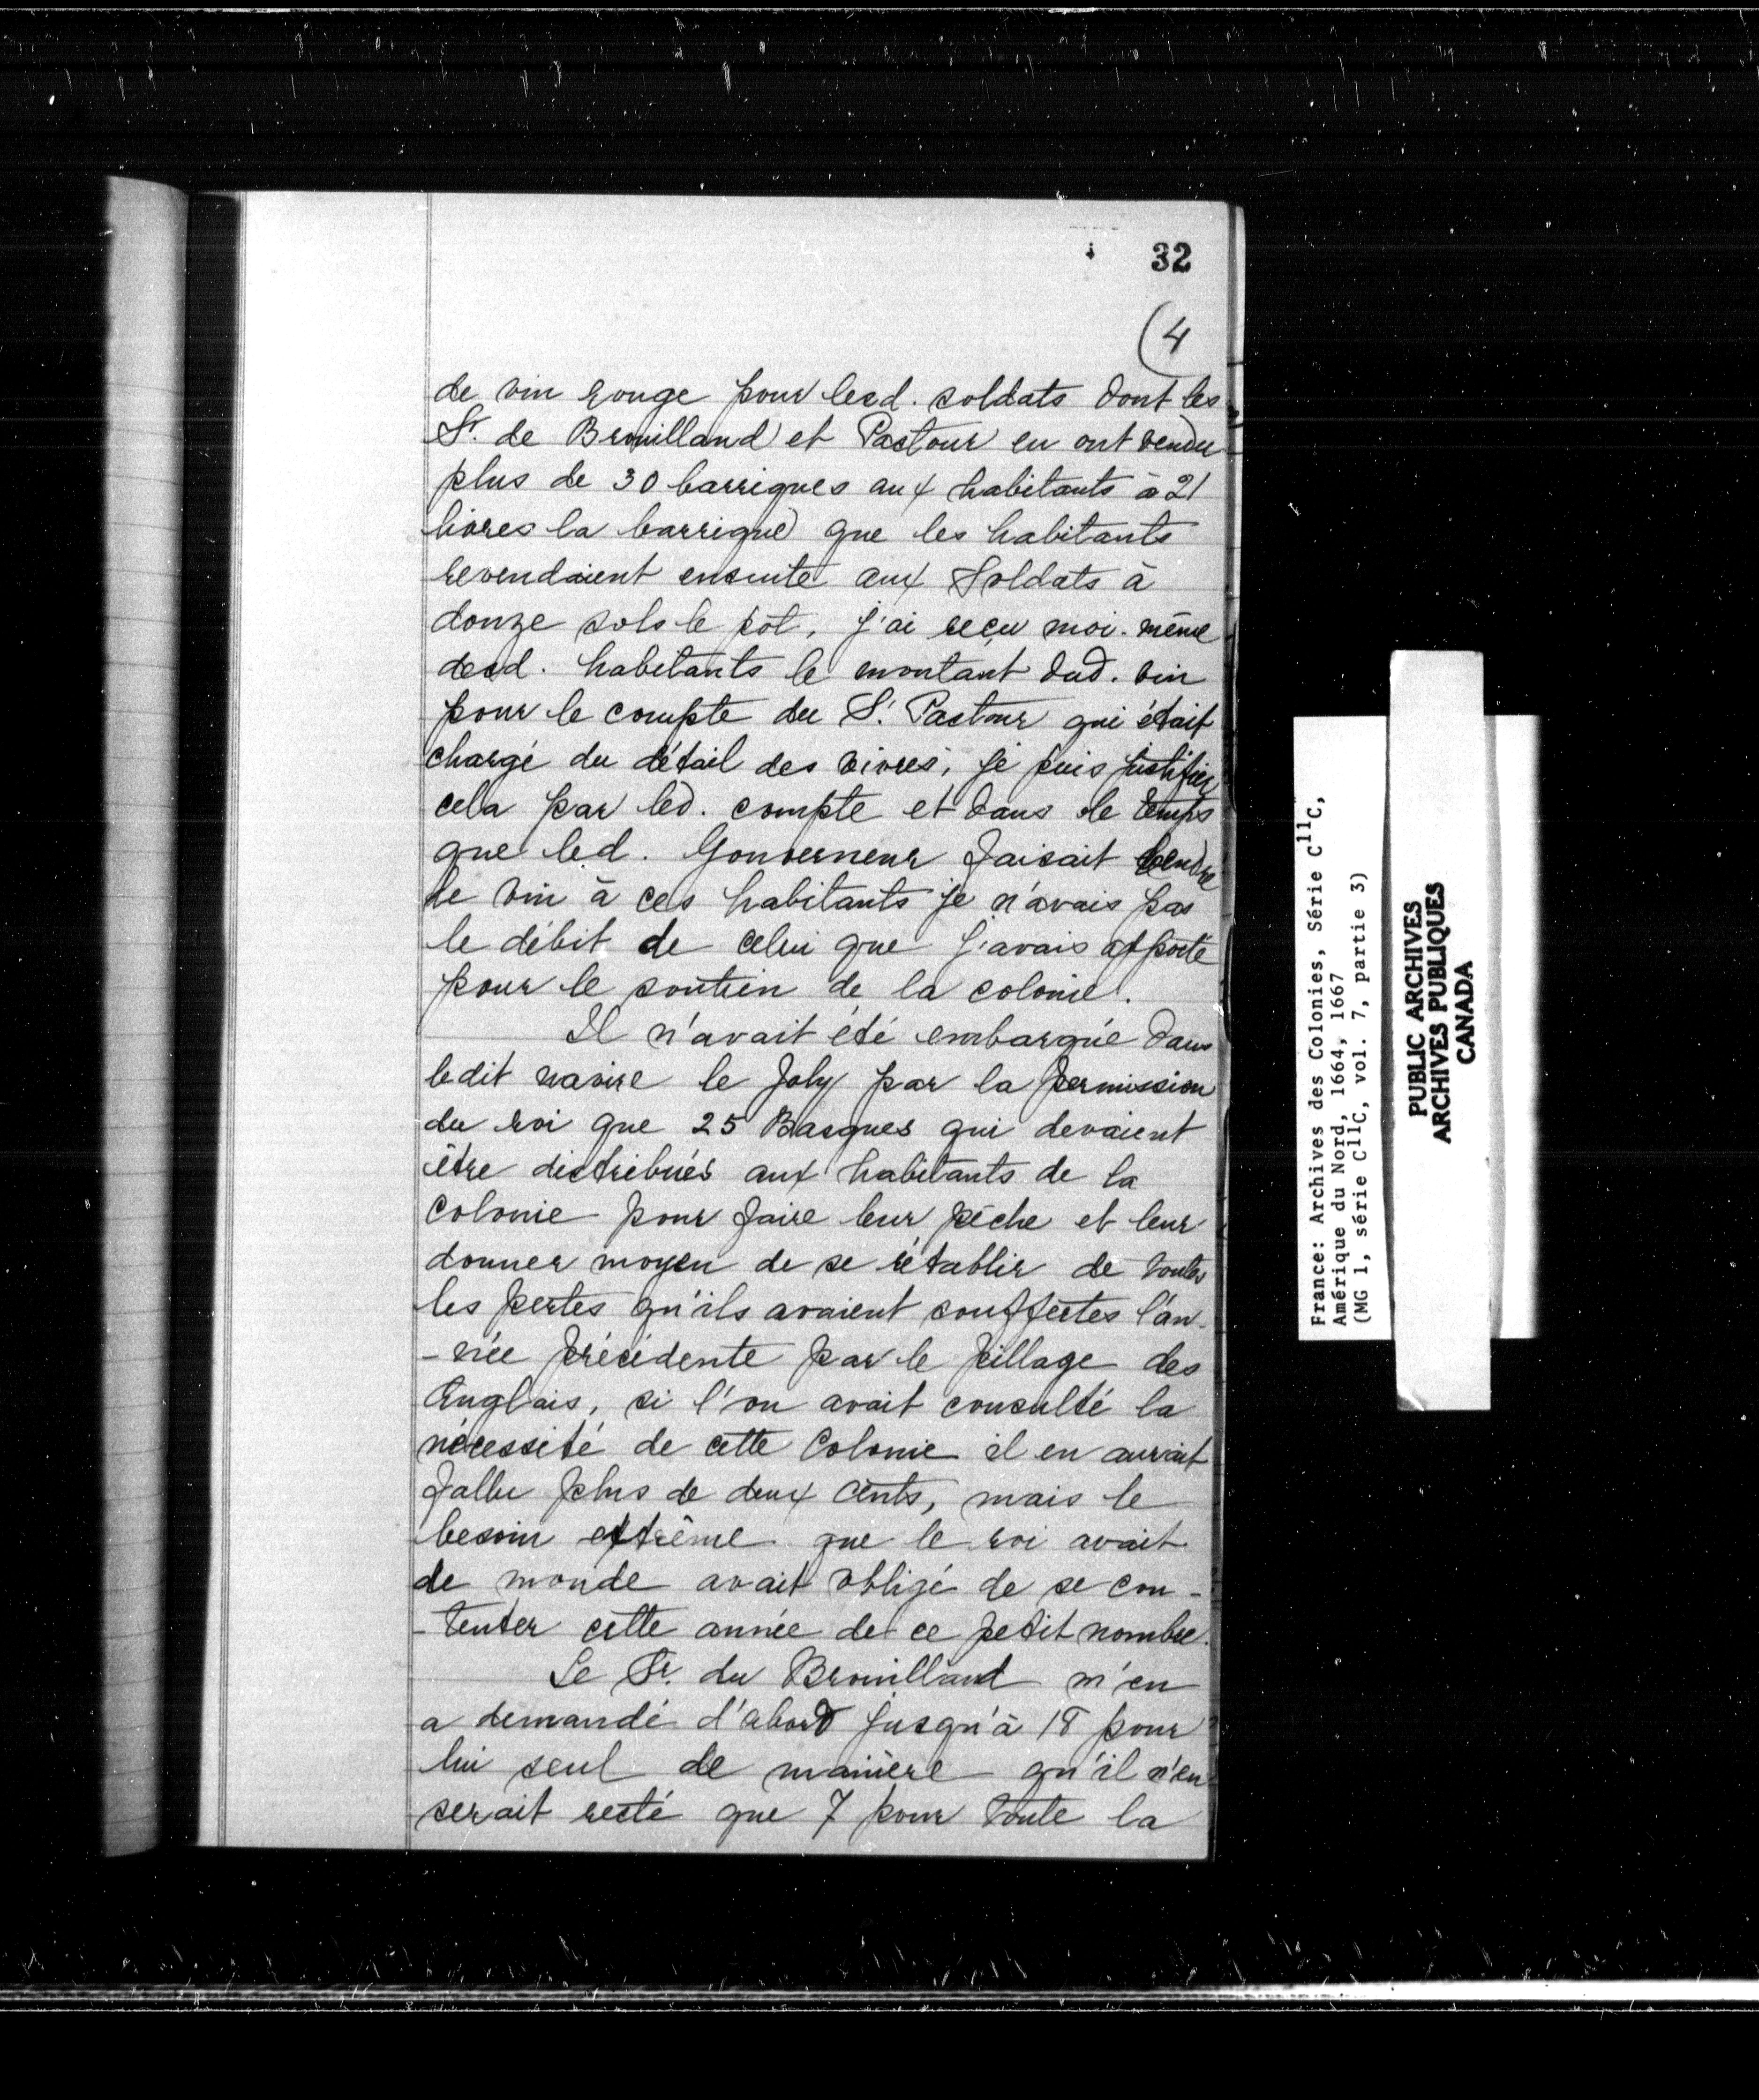 32
(4
de vin rouge pour lesd. soldats dont les
Sr. de Brouilland et Pastour en ont vendu
plus de 30 barriques aux habitants à 21
livres la barrique que les habitants
revendaient ensuite aux Soldats à
douze sols le pot, j'ai reçu moi-même
desd. habitants le montant dud. vin
pour le compte du S. Pastour qui était
chargé du détail des vivres, je puis justifier
cela par led. compte et dans le temps
que led. Gouverneur faisait vendre
le vin à ces habitants je n'avais pas
le débit de celui que j'avais apporté
pour le soutien de la colonie.
Il n'avait été embarqué dans
ledit navire le Joly par la permission
du roi que 25 Basques qui devaient
être distribués aux habitants de la
Colonie pour faire leur pêche et leur
donner moyen de se rétablir de toutes
les pertes qu'ils avaient souffertes l'an-
-née précédente par le pillage des
Anglais, si l'on avait consulté la
nécessité de cette Colonie il en aurait
fallu plus de deux cents, mais le
besoin extrême que le roi avait
de monde avait obligé de se con-
-tenter cette année de ce petit nombre.
Le Sr. du Brouilland m'en
a demandé d'abord jusqu'à 18 pour
lui seul de manière qu'il n'en
serait resté que 7 pour toute la
France: Archives des Colonies, Série C11C,
Amérique du Nord, 1664, 1667
(MG 1, série C11C, vol. 7, partie 3)
PUBLIC ARCHIVES
ARCHIVES PUBLIQUES
CANADA